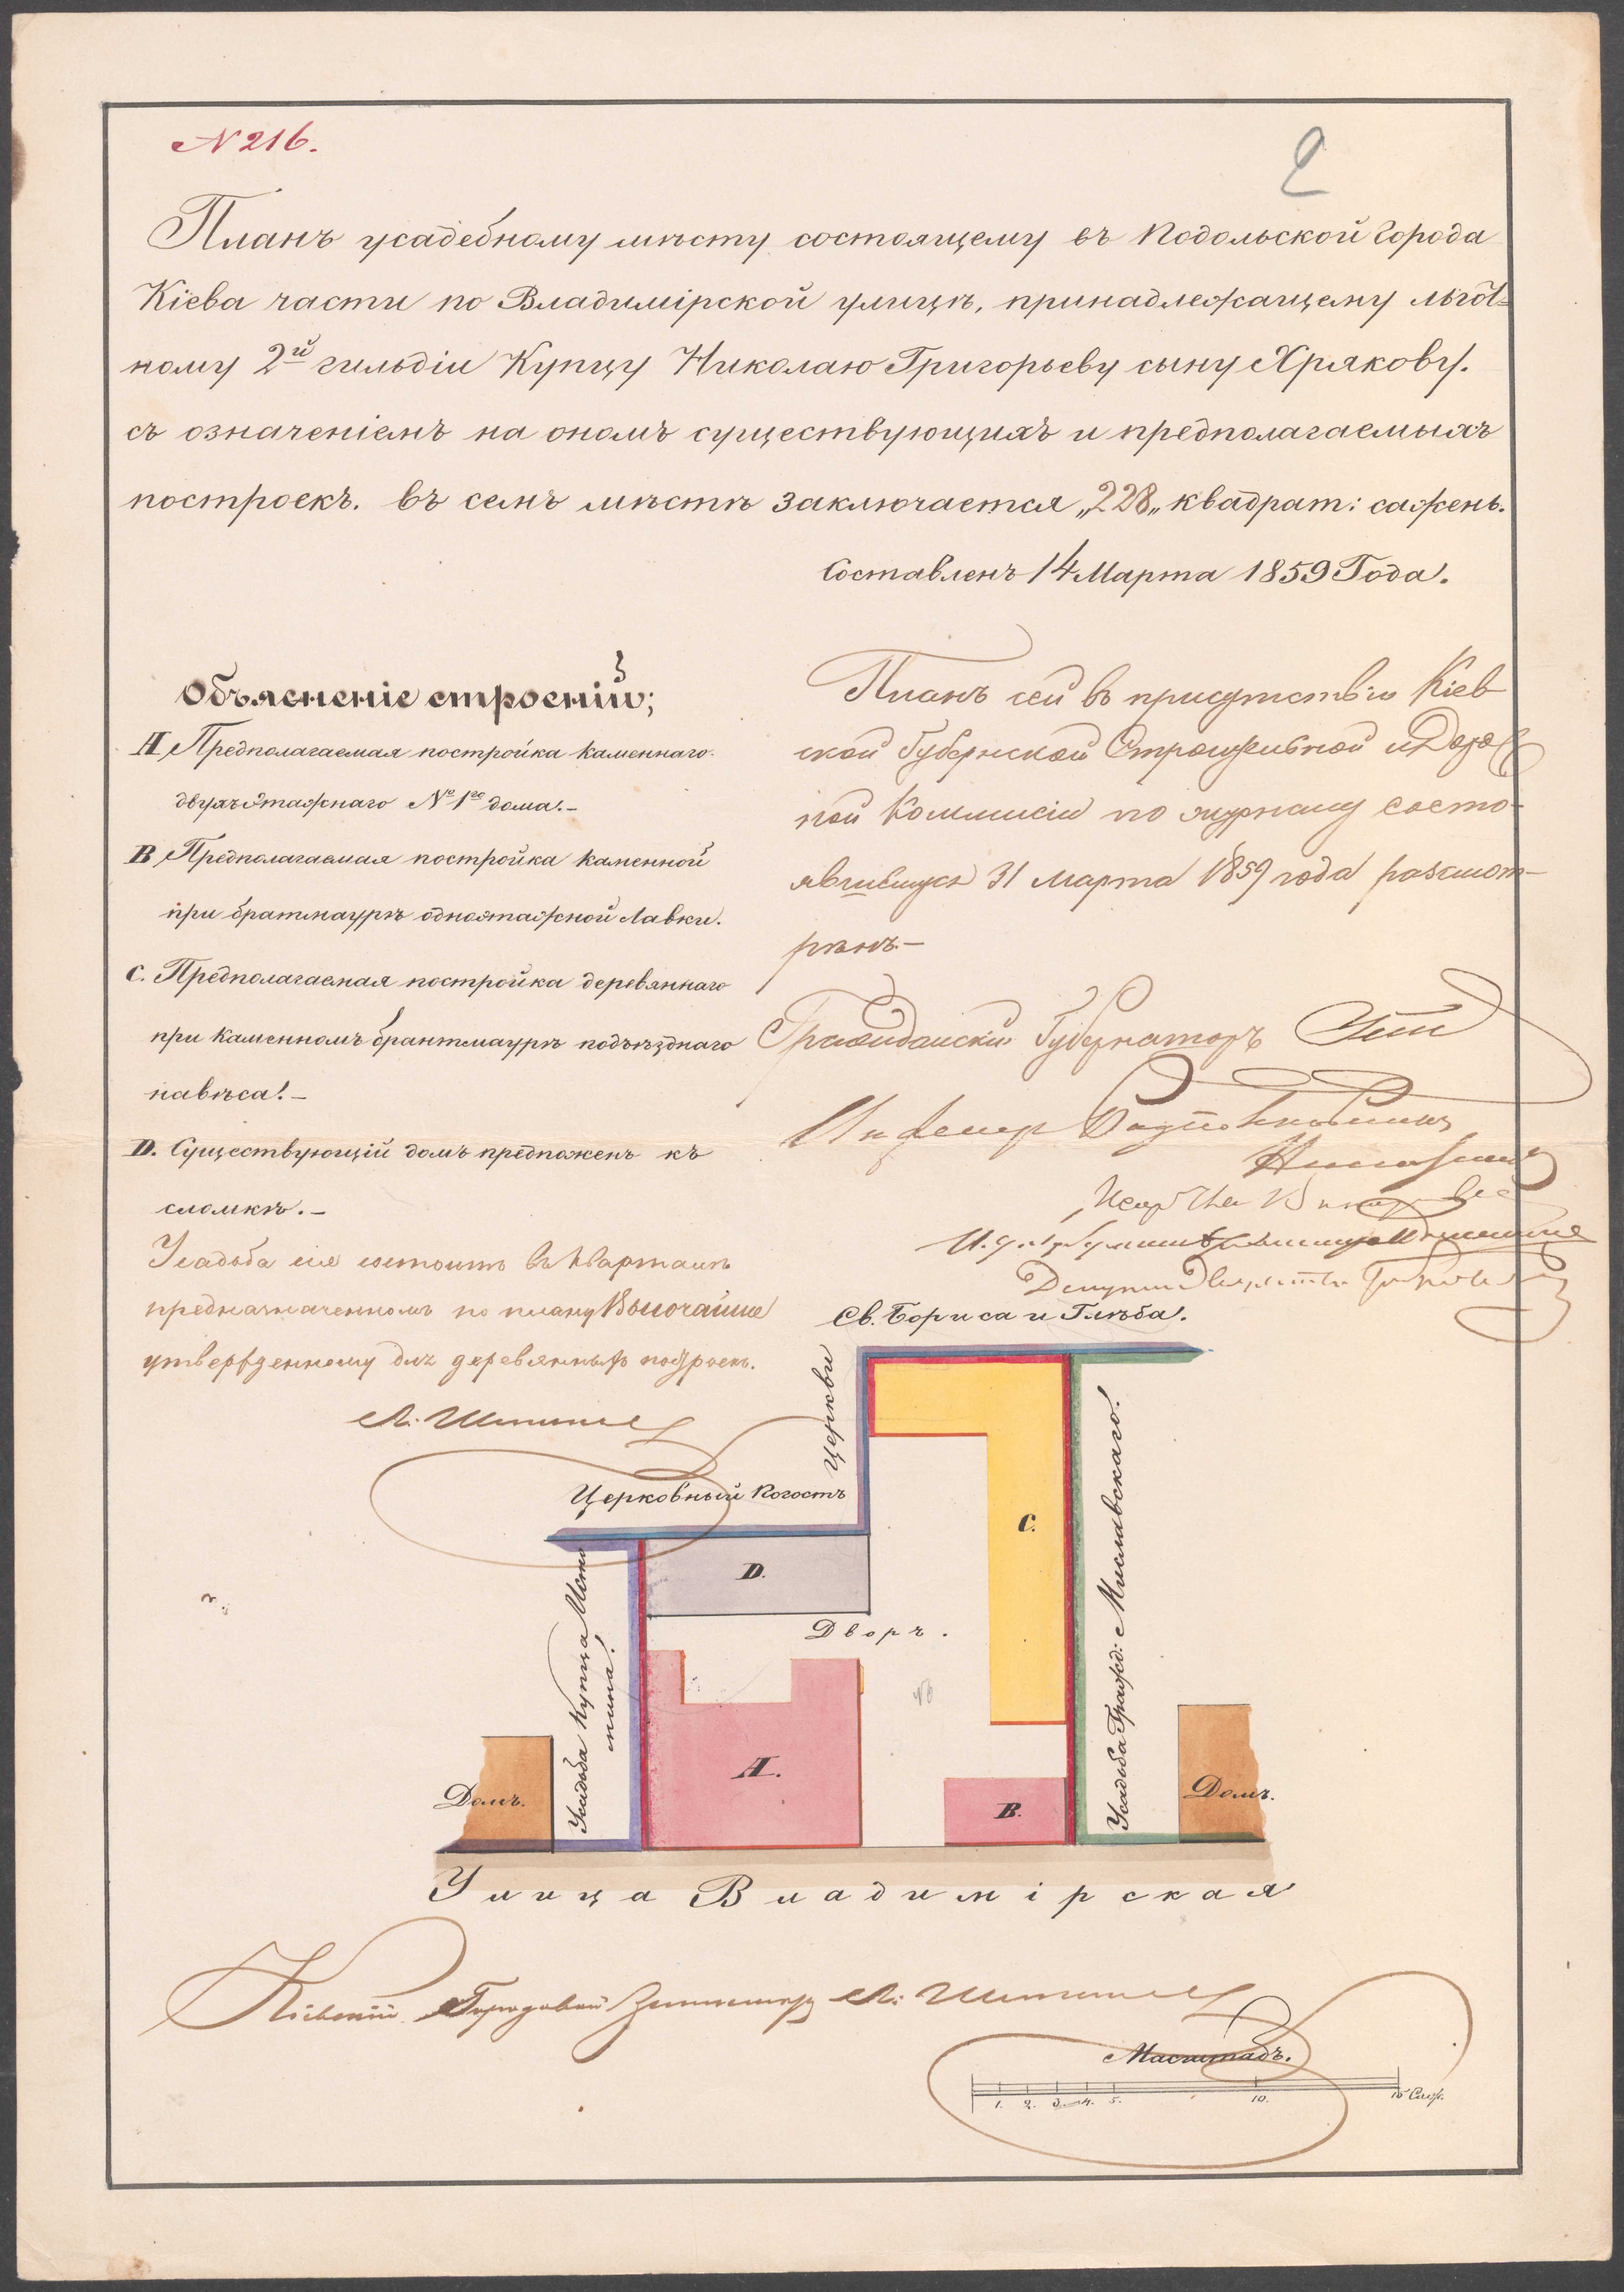 № 216.
2
Планъ усадебному мѣсту состоящему въ Подольской Города
Кіева части по Владимірской улицѣ, принадлежащему льгот=
ному 2й гильдіи Купцу Николаю Григорьеву сыну Хрякову.
съ означеніемъ на ономъ существующихъ и предполагаемыхъ
построекъ. въ семъ мѣстѣ заключается „228„ квадрат: сажень.
Составленъ 14 Марта 1859 Года.
Объясненіе строеній;
А, Предполагаемая постройка каменнаго
двухъэтажнаго № 1го дома.–
В, Предполагаемая постройка каменной
при братмаурѣ одноэтажной Лавки.
С. Предполагаемая постройка деревяннаго
при каменномъ брантмаурѣ подъѣзднаго
навѣса.–
D. Существующій домъ предложенъ къ
сломкѣ.–
Усадьба сія состоитъ въ кварталѣ
предназначенномъ по плану Высочайше
утвержденному для деревянныхъ построекъ.
Планъ сей въ присутствіи Кіев
ской Губернской Строительной и Дорож
ной Коммисіи по журналу состо-
явшемуся 31 Марта 1859 года разсмот-
рѣнъ.–
Гражданскій Губернаторъ
Инженер
Св. Бориса и Глѣба.
Церкви
Церковный Погостъ
D.
C.
Дворъ.
Усадьба Купца
Усадьба Гражд: Миславскаго.
A.
B.
Домъ.
Домъ.
Улица Владимірская
Кіевскій Городовой
Масштабъ.
1. 2. 3. 4. 5. 10. 15 Саж.